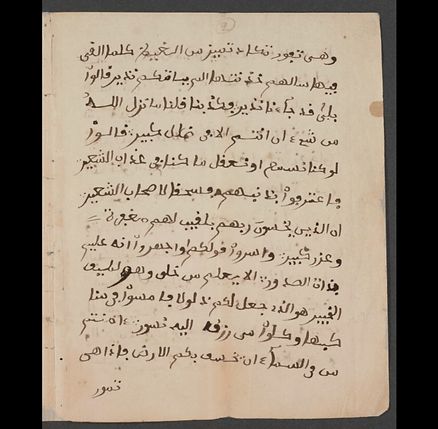 وهى تفور تكاد تميز من الغيظ كلما القى
فيها سالهم خزنتها الم ياتكم نذير قالوا
بلى قد جاءنا نذير فكذبنا وقلنا ما نزل الله
من شىء ان انتم الا فى ضلل كبير وقالوا
لو كنا نسمع او نعقل ما كنا فى عذاب الشعير
فاعترفوا بذانبهم فسحقا لاصحاب الشعير
ان الذين يخشون ربهم بالغيب لهم مغفرة
واجر كبير واسروا قولكم او اجهروا انه عليم
بذات الصدور الا يعلم من خلق وهو اللطيف
الخبير هو الذى جعل لكم ذلولا فامشوا فى منا
كبها وكلوا من رزقه اليه نشور ءامنتم
من فى السماء ان يخسف بكم الارض فاذا هى
تمور